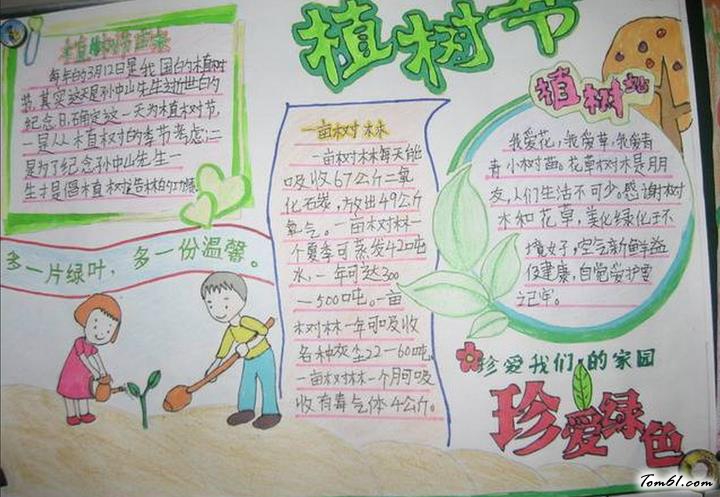 植树节
植树节由来
每年的3月12日是我国的植树
节,其实这天是孙中山先生逝世的
纪念日,确定这一天为植树节,
一是从植树的季节考虑;二
是为了纪念孙中山先生一
生
植树造林的功绩。
多一片绿叶,多一份温馨。
一亩树林
一亩树林每天能
吸收67公斤二氧
化石炭,放出49公斤
氧气。一亩树林一
个夏季可蒸发420吨
水,一年可达300
—500吨。一亩
树林一年可吸收
各种灰尘22—60吨,
一亩树林一个月可吸
收有毒气体4公斤。
植树
我爱花,我爱草,我爱青
青小树苗。花草树木是朋
友,人们生活不可少。感谢树
木和花草,美化绿化
环
境好,空气新鲜益
健康,自觉爱护要
记牢。
珍爱我们的家园
珍爱绿色
Tom61.com